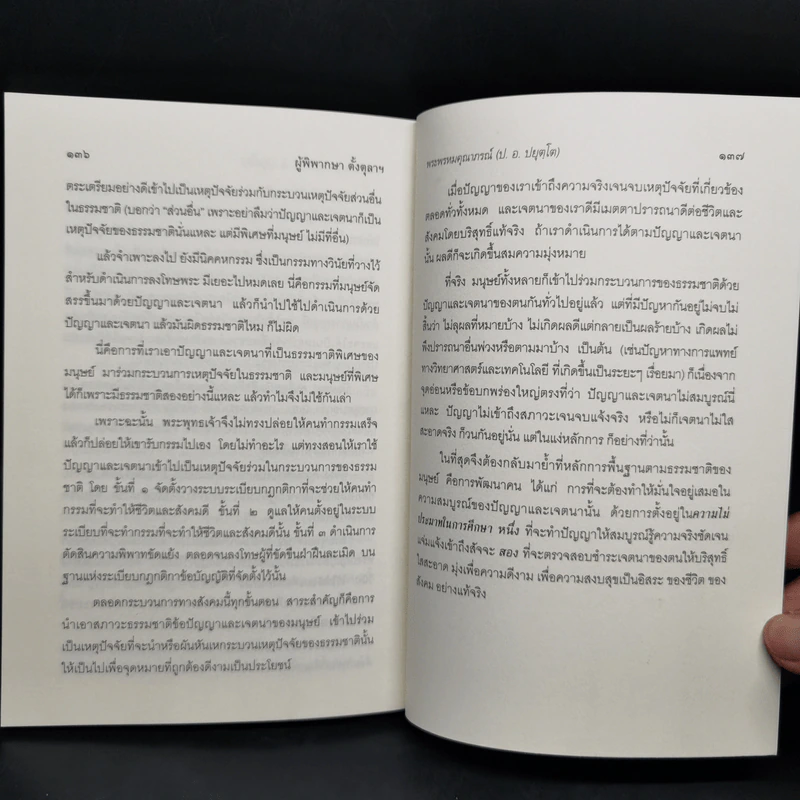 ๑๓๖
ผู้พิพากษา ตั้งตุลาฯ
ตระเตรียมอย่างดีเข้าไปเป็นเหตุปัจจัยร่วมกับกระบวนเหตุปัจจัยส่วนอื่น
ในธรรมชาติ (บอกว่า “ส่วนอื่น” เพราะอย่าลืมว่าปัญญาและเจตนาก็เป็น
เหตุปัจจัยของธรรมชาตินั่นแหละ แต่มีพิเศษที่มนุษย์ ไม่มีที่อื่น)
แล้วจำเพาะลงไป ยังมีนิคคหกรรม ซึ่งเป็นกรรมทางวินัยที่วางไว้
สำหรับดำเนินการลงโทษพระ มีเยอะไปหมดเลย นี่คือกรรมที่มนุษย์จัด
สรรขึ้นมาด้วยปัญญาและเจตนา แล้วก็นำไปใช้ไปดำเนินการด้วย
ปัญญาและเจตนา แล้วมันผิดธรรมชาติไหม ก็ไม่ผิด
นี่คือการที่เราเอาปัญญาและเจตนาที่เป็นธรรมชาติพิเศษของ
มนุษย์ มาร่วมกระบวนการเหตุปัจจัยในธรรมชาติ และมนุษย์ที่พิเศษ
ได้ก็เพราะมีธรรมชาติสองอย่างนี้แหละ แล้วทำไมจึงไม่ใช้กันเล่า
เพราะฉะนั้น พระพุทธเจ้าจึงไม่ทรงปล่อยให้คนทำกรรมเสร็จ
แล้วก็ปล่อยให้เขารับกรรมไปเอง โดยไม่ทำอะไร แต่ทรงสอนให้เราใช้
ปัญญาและเจตนาเข้าไปเป็นเหตุปัจจัยร่วมในกระบวนการของธรรม
ชาติ โดย ขั้นที่ ๑ จัดตั้งวางระบบระเบียบกฎกติกาที่จะช่วยให้คนทำ
กรรมที่จะทำให้ชีวิตและสังคมดี ขั้นที่ ๒ ดูแลให้คนตั้งอยู่ในระบบ
ระเบียบที่จะทำกรรมที่จะทำให้ชีวิตและสังคมดีนั้น ขั้นที่ ๓ ดำเนินการ
ตัดสินความพิพาทขัดแย้ง ตลอดจนลงโทษผู้ที่ขัดขืนฝ่าฝืนละเมิด บน
ฐานแห่งระเบียบกฎกติกาข้อบัญญัติที่จัดตั้งไว้นั้น
ตลอดกระบวนการทางสังคมนี้ทุกขั้นตอน สาระสำคัญก็คือการ
นำเอาสภาวะธรรมชาติข้อปัญญาและเจตนาของมนุษย์ เข้าไปร่วม
เป็นเหตุปัจจัยที่จะนำหรือผันหันเหกระบวนเหตุปัจจัยของธรรมชาตินั้น
ให้เป็นไปเพื่อจุดหมายที่ถูกต้องดีงามเป็นประโยชน์
พระพรหมคุณาภรณ์ (ป. อ. ปยุตฺโต)
๑๓๗
เมื่อปัญญาของเราเข้าถึงความจริงเจนจบเหตุปัจจัยที่เกี่ยวข้อง
ตลอดทั่วทั้งหมด และเจตนาของเราดีมีเมตตาปรารถนาดีต่อชีวิตและ
สังคมโดยบริสุทธิ์แท้จริง ถ้าเราดำเนินการได้ตามปัญญาและเจตนา
นั้น ผลดีก็จะเกิดขึ้นสมความมุ่งหมาย
ที่จริง มนุษย์ทั้งหลายก็เข้าไปร่วมกระบวนการของธรรมชาติด้วย
ปัญญาและเจตนาของตนกันทั่วไปอยู่แล้ว แต่ที่มีปัญหากันอยู่ไม่จบไม่
สิ้นว่า ไม่ลุผลที่หมายบ้าง ไม่เกิดผลดีแต่กลายเป็นผลร้ายบ้าง เกิดผลไม่
พึงปรารถนาอื่นพ่วงหรือตามมาบ้าง เป็นต้น (เช่นปัญหาทางการแพทย์
ทางวิทยาศาสตร์และเทคโนโลยี ที่เกิดขึ้นเป็นระยะๆ เรื่อยมา) ก็เนื่องจาก
จุดอ่อนหรือข้อบกพร่องใหญ่ตรงที่ว่า ปัญญาและเจตนาไม่สมบูรณ์นี่
แหละ ปัญญาไม่เข้าถึงสภาวะเจนจบแจ้งจริง หรือไม่ก็เจตนาไม่ใส
สะอาดจริง ก็วนกันอยู่นั่น แต่ในแง่หลักการ ก็อย่างที่ว่านั้น
ในที่สุดจึงต้องกลับมาย้ำที่หลักการพื้นฐานตามธรรมชาติของ
มนุษย์ คือการพัฒนาคน ได้แก่ การที่จะต้องทำให้มั่นใจอยู่เสมอใน
ความสมบูรณ์ของปัญญาและเจตนานั้น ด้วยการตั้งอยู่ในความไม่
ประมาทในการศึกษา หนึ่ง ที่จะทำปัญญาให้สมบูรณ์รู้ความจริงชัดเจน
แจ่มแจ้งเข้าถึงสัจจะ สอง ที่จะตรวจสอบชำระเจตนาของตนให้บริสุทธิ์
ใสสะอาด มุ่งเพื่อความดีงาม เพื่อความสงบสุขเป็นอิสระ ของชีวิต ของ
สังคม อย่างแท้จริง